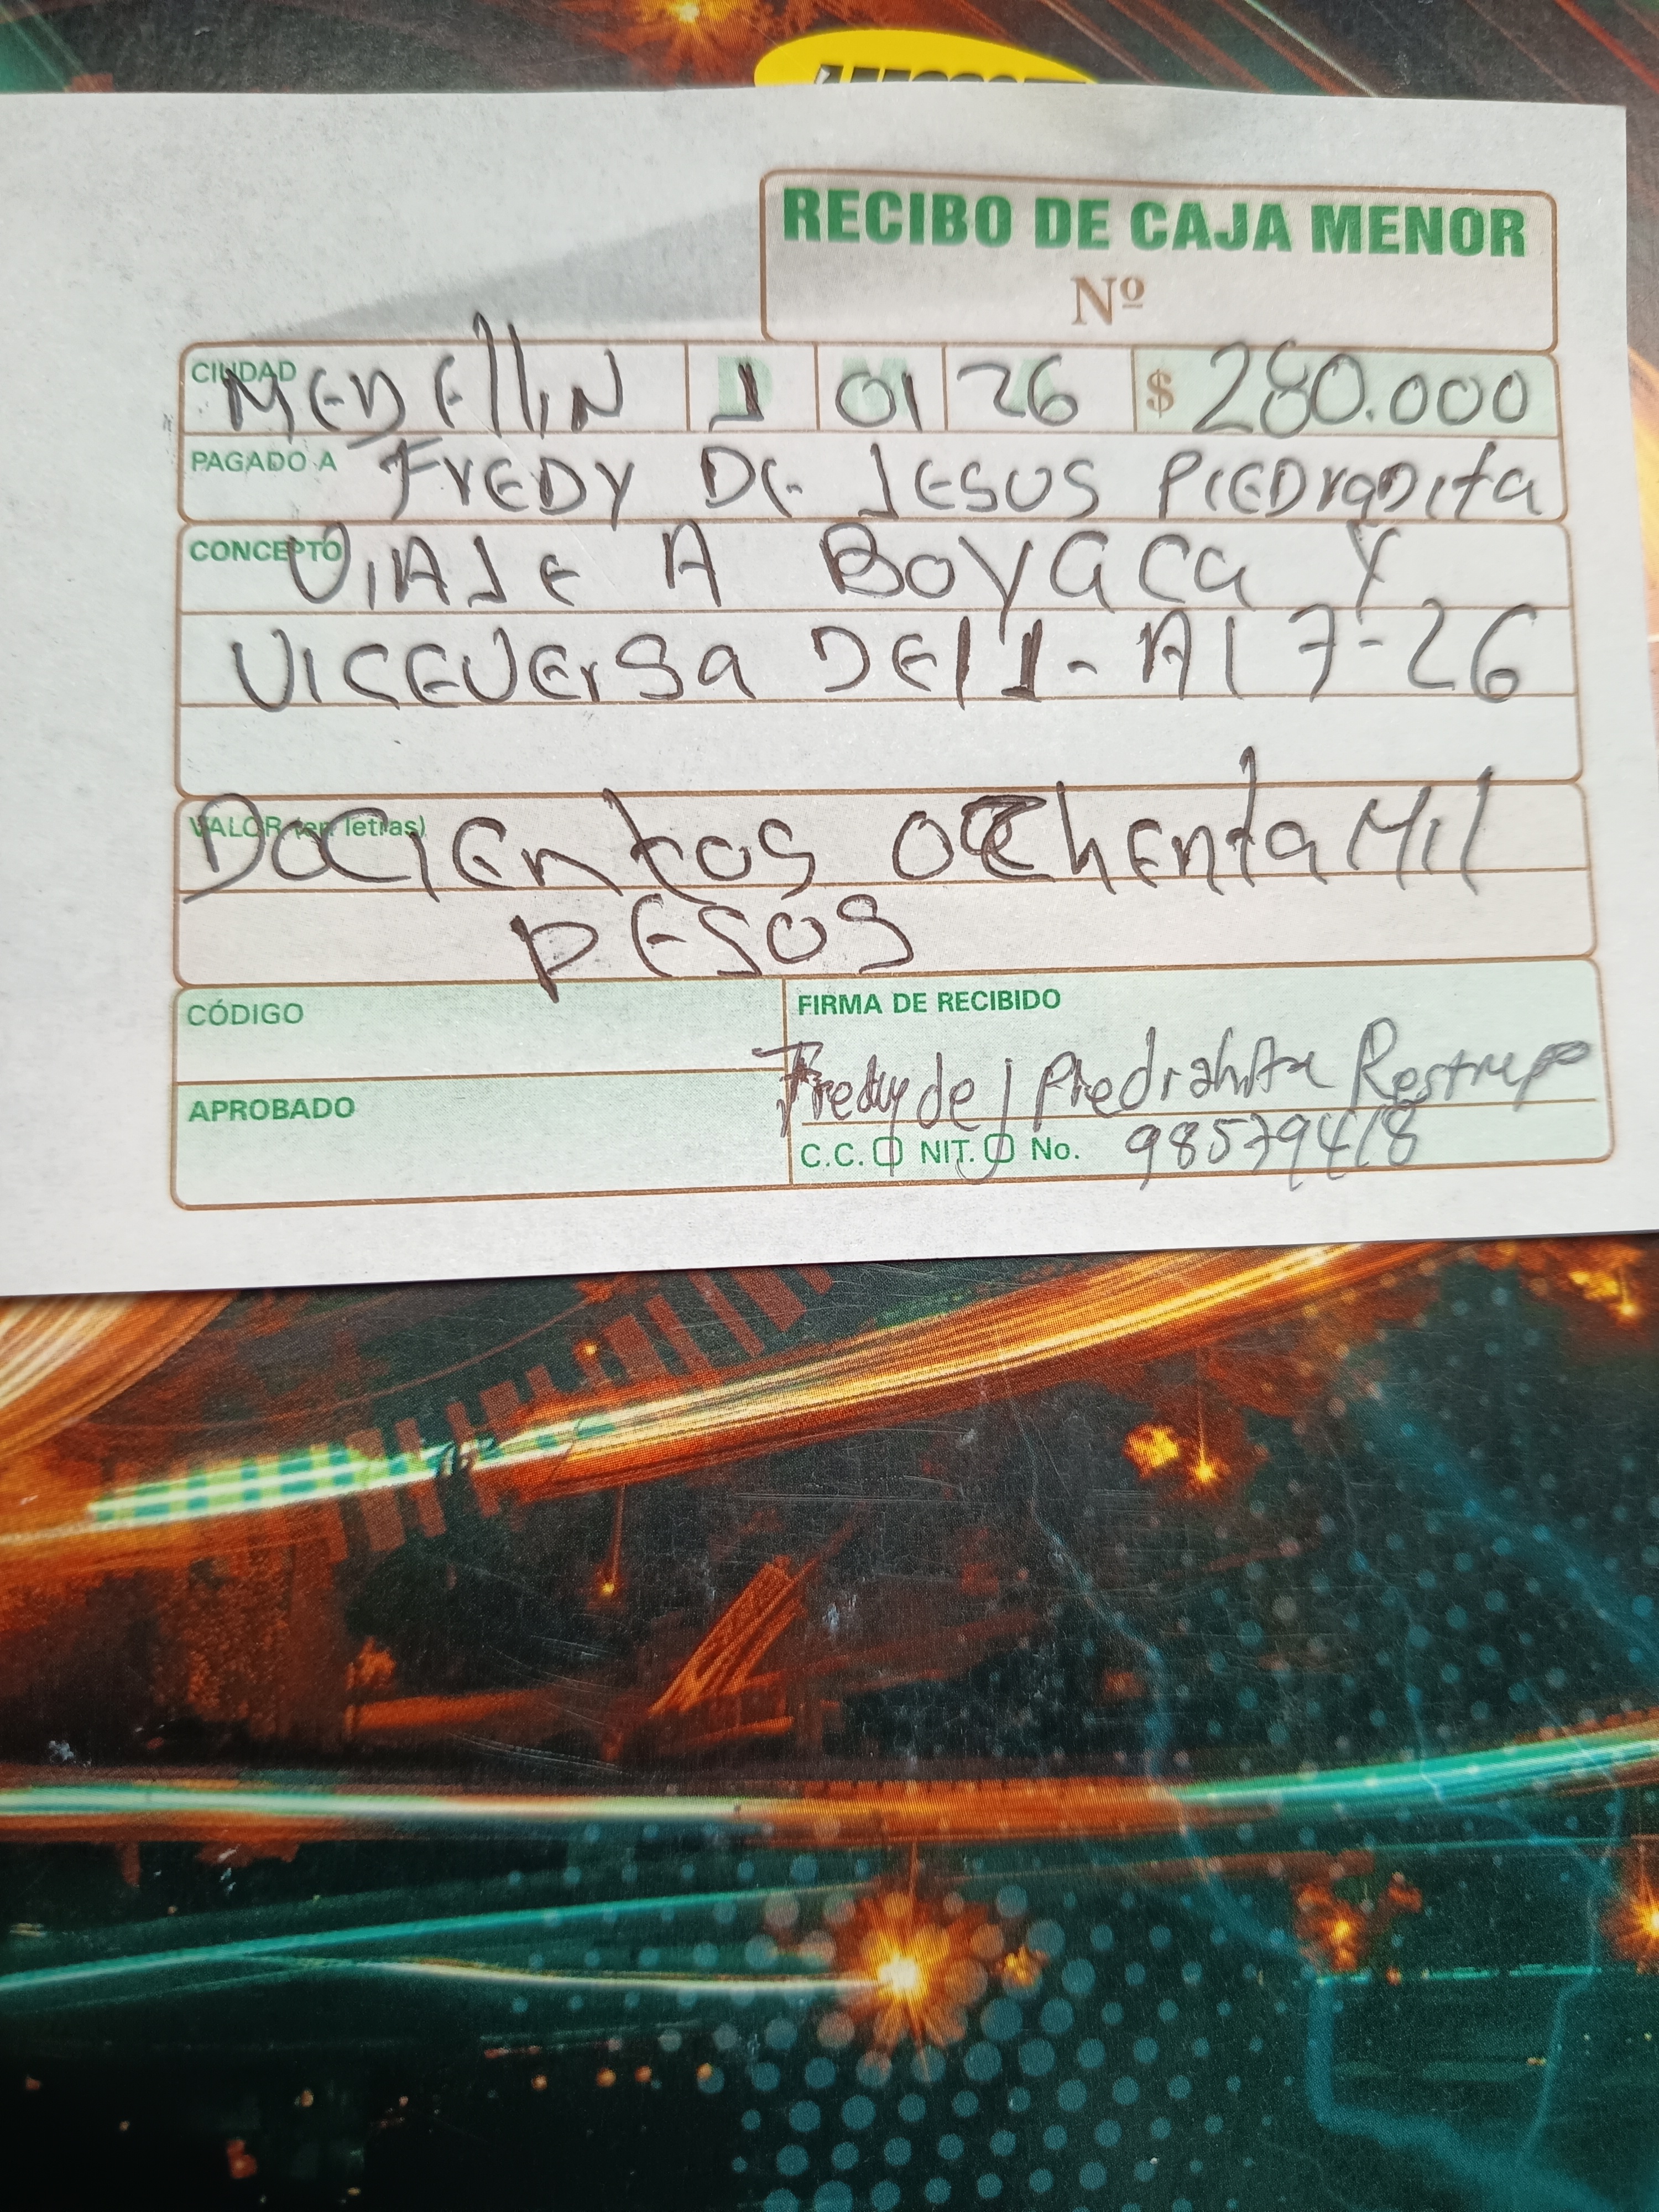 RECIBO DE CAJA MENOR
Nº
CIUDAD MEDELLIN D 1 M 01 A 26 $ 280.000
PAGADO A FREDY DE JESUS PIEDRADITA
CONCEPTO VIAJE A BOYACA Y
VICEVERSA DEL 1- AL 7-26
VALOR (en letras) DOCIENTOS OCHENTA MIL
PESOS
CÓDIGO
APROBADO
FIRMA DE RECIBIDO
Fredy de J Piedrahita Restrepo
C.C. NIT. No. 98579418